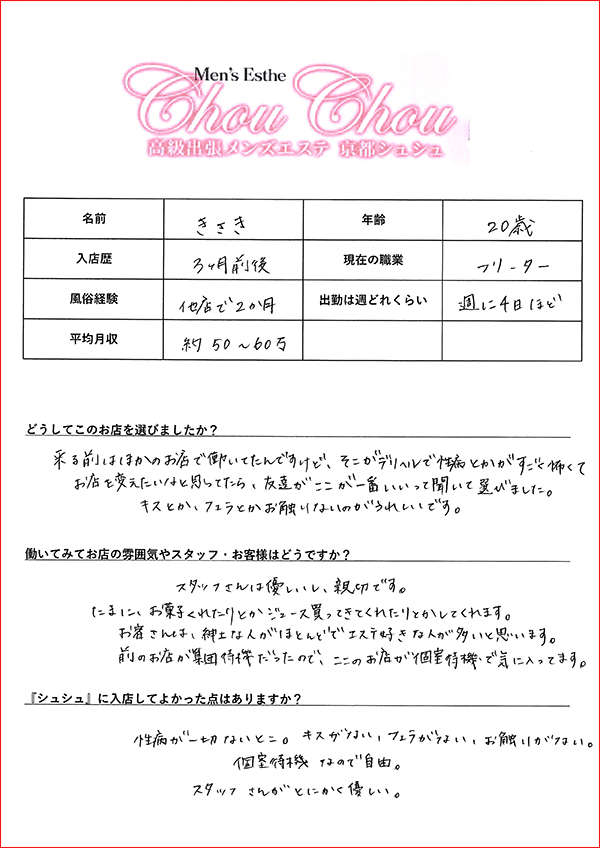 Men's Esthe
Chou Chou
高級出張メンズエステ 京都シュシュ
名前 きさき 年齢 20歳
入店歴 3ヶ月前後 現在の職業 フリーター
風俗経験 他店で2か月 出勤は週どれくらい 週に4日ほど
平均月収 約50～60万
どうしてこのお店を選びましたか？
来る前はほかのお店で働いてたんですけど、そこがデリヘルで性病とかがすごく怖くて
お店を変えたいなと思ってたら、友達がここが一番いいって聞いて選びました。
キスとか、フェラとかお触りないのがうれしいです。
働いてみてお店の雰囲気やスタッフ・お客様はどうですか？
スタッフさんは優しいし、親切です。
たまに、お菓子くれたりとかジュース買ってきてくれたりとかしてくれます。
お客さんは、紳士な人がほとんどでエステ好きな人が多いと思います。
前のお店が集団待機だったので、ここのお店が個室待機で気に入ってます。
『シュシュ』に入店してよかった点はありますか？
性病が一切ないとこ。キスがない、フェラがない、お触りがない。
個室待機なので自由。
スタッフさんがとにかく優しい。